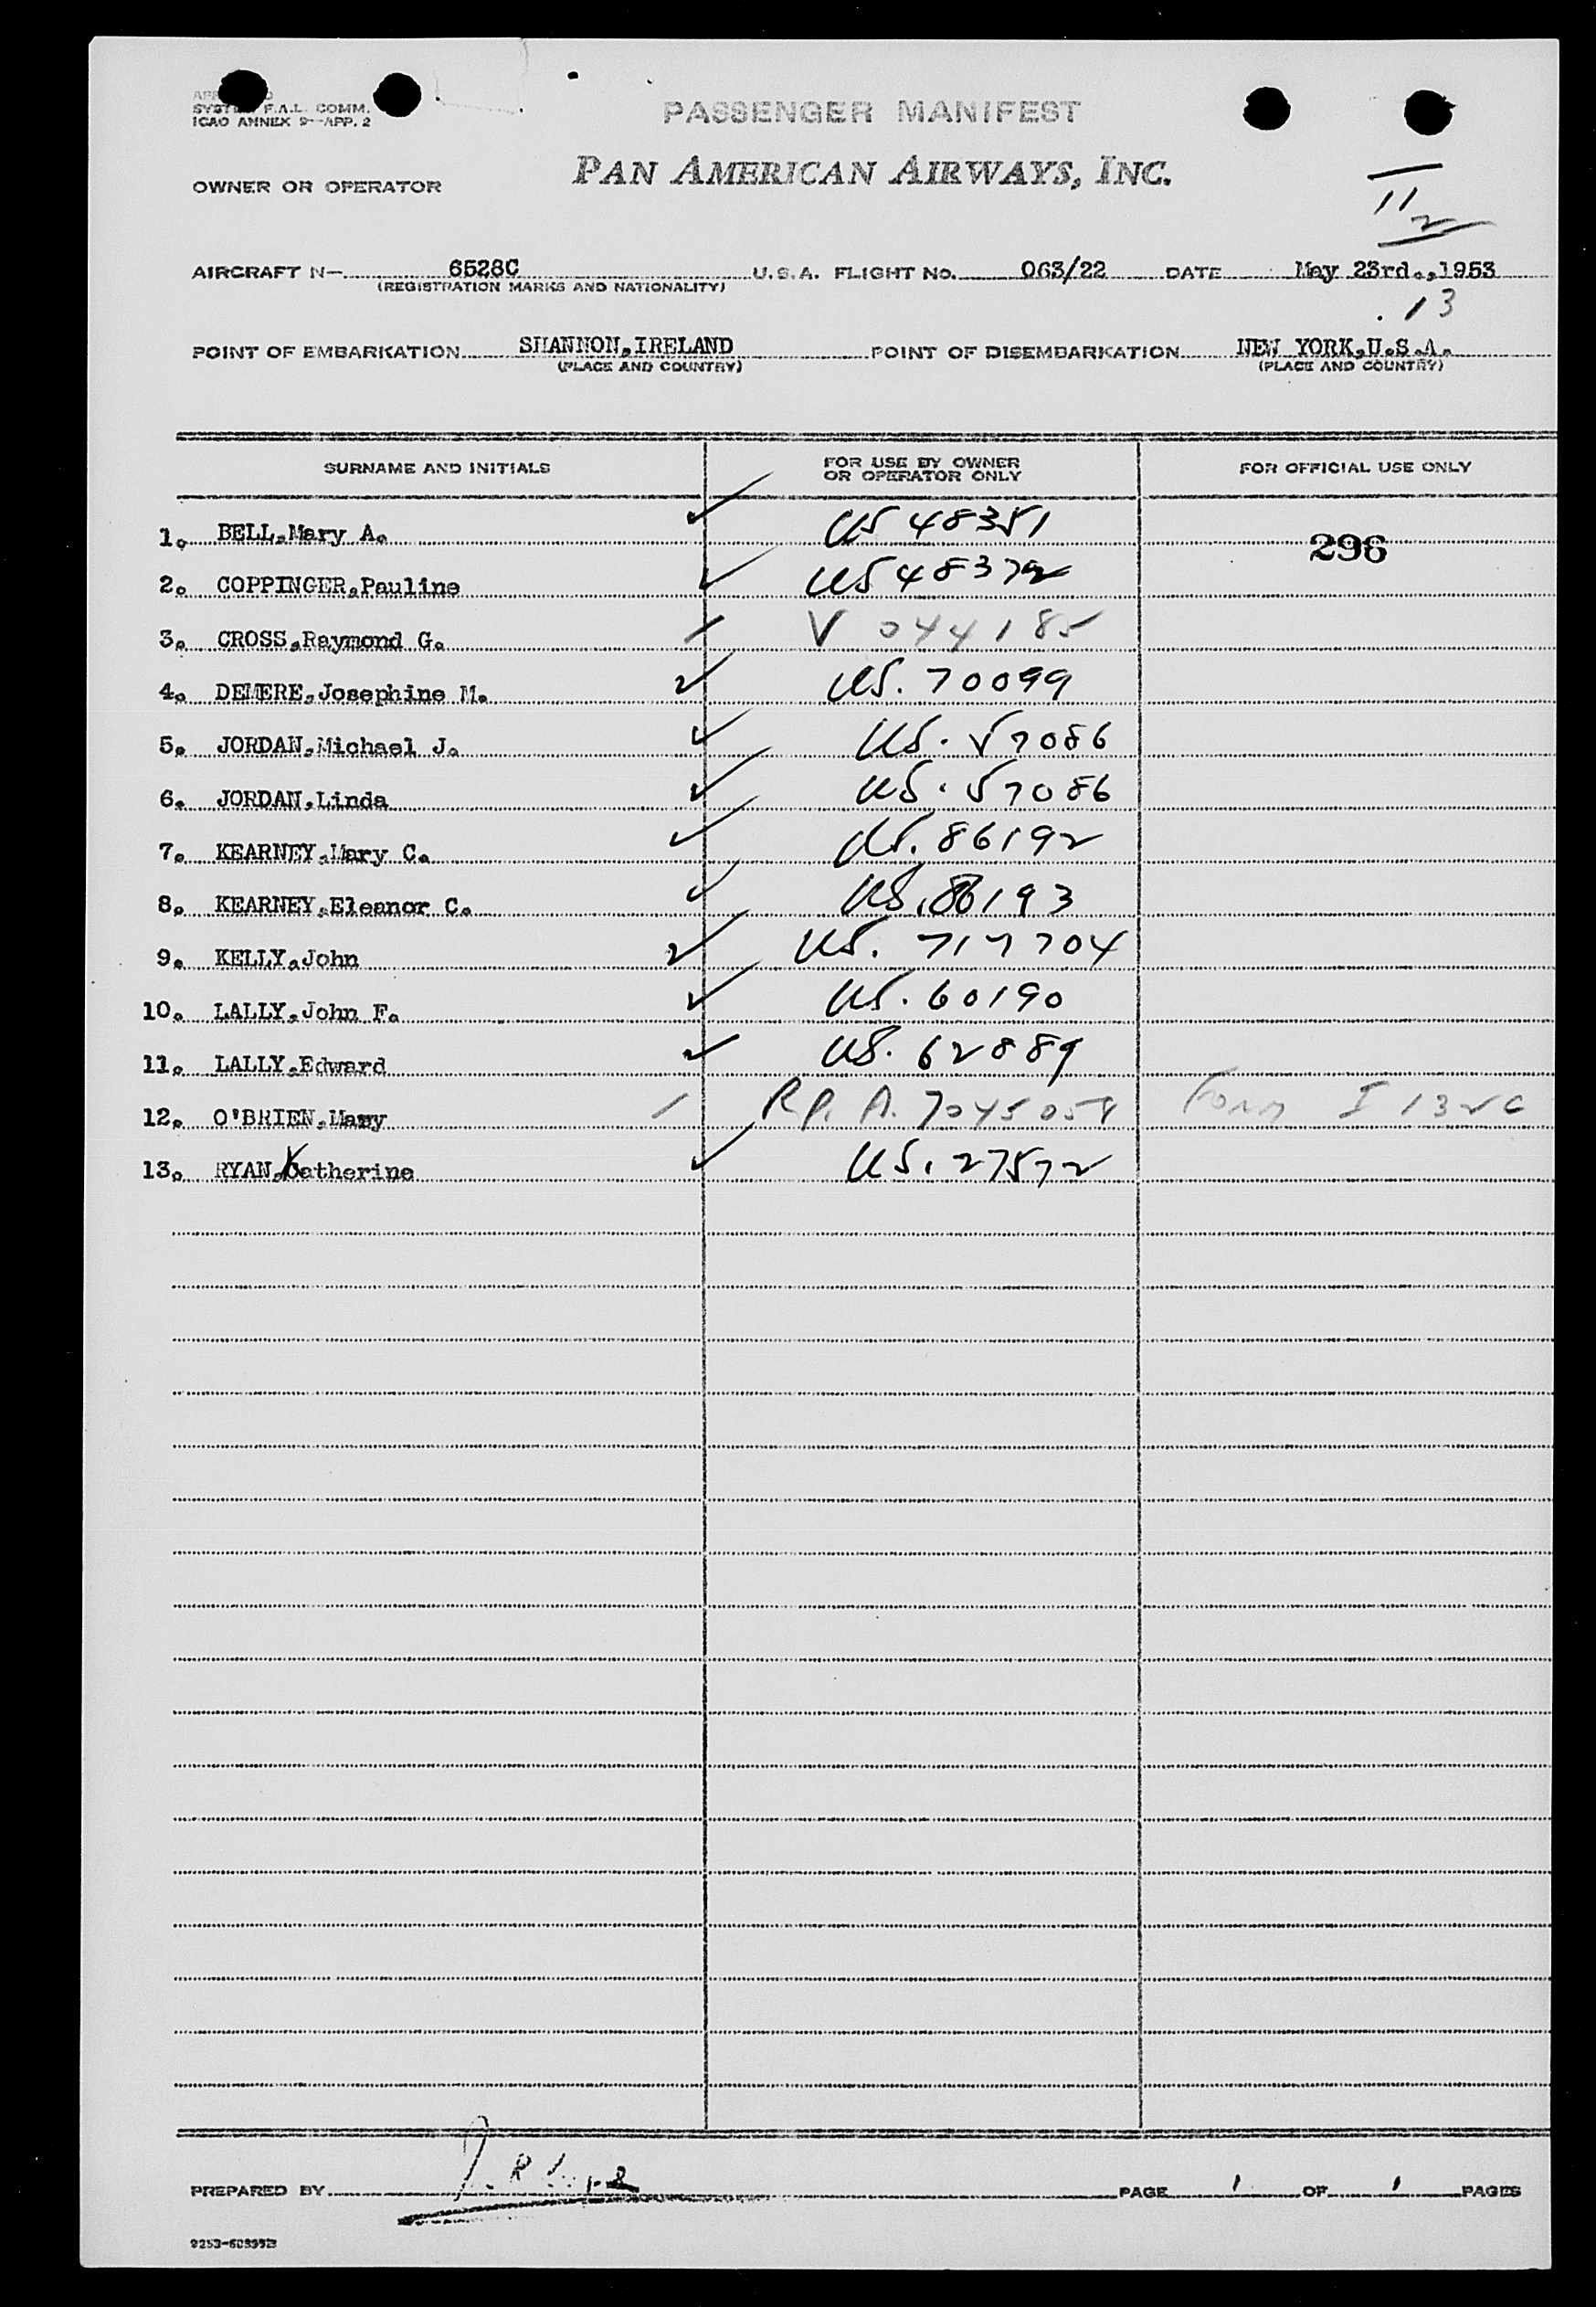 SYSTEM F.A.L. COMM.
ICAO ANNEX 9-APP. 2
PASSENGER MANIFEST
PAN AMERICAN AIRWAYS, INC.
OWNER OR OPERATOR
11
2
AIRCRAFT N- 6528C U.S.A. FLIGHT NO. 063/22 DATE May 23rd.,1953
(REGISTRATION MARKS AND NATIONALITY)
13
POINT OF EMBARKATION SHANNON,IRELAND POINT OF DISEMBARKATION NEW YORK,U.S.A.
(PLACE AND COUNTRY) (PLACE AND COUNTRY)
SURNAME AND INITIALS FOR USE BY OWNER OR OPERATOR ONLY FOR OFFICIAL USE ONLY
1. BELL,Mary A. US 48351 296
2. COPPINGER,Pauline US 48372
3. CROSS,Raymond G. V 044185
4. DEMERE,Josephine M. US. 70099
5. JORDAN,Michael J. US. 57086
6. JORDAN,Linda US. 57086
7. KEARNEY,Mary C. US. 86192
8. KEARNEY,Eleanor C. US. 86193
9. KELLY,John US. 717704
10. LALLY,John F. US. 60190
11. LALLY,Edward US. 62889
12. O'BRIEN,Mary R.P. A. 7045058 Form I 132C
13. RYAN,Catherine US. 27572
PREPARED BY PAGE 1 OF 1 PAGES